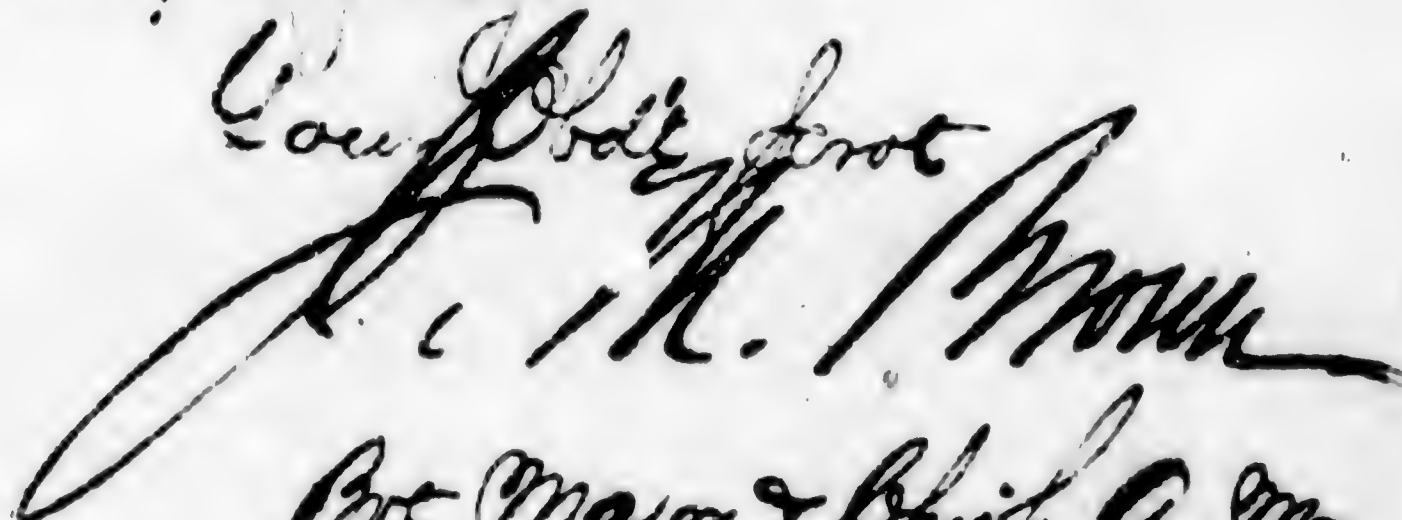 Your Obdt Servt
J. K. Brown
Bvt Major & Chief Q. M.